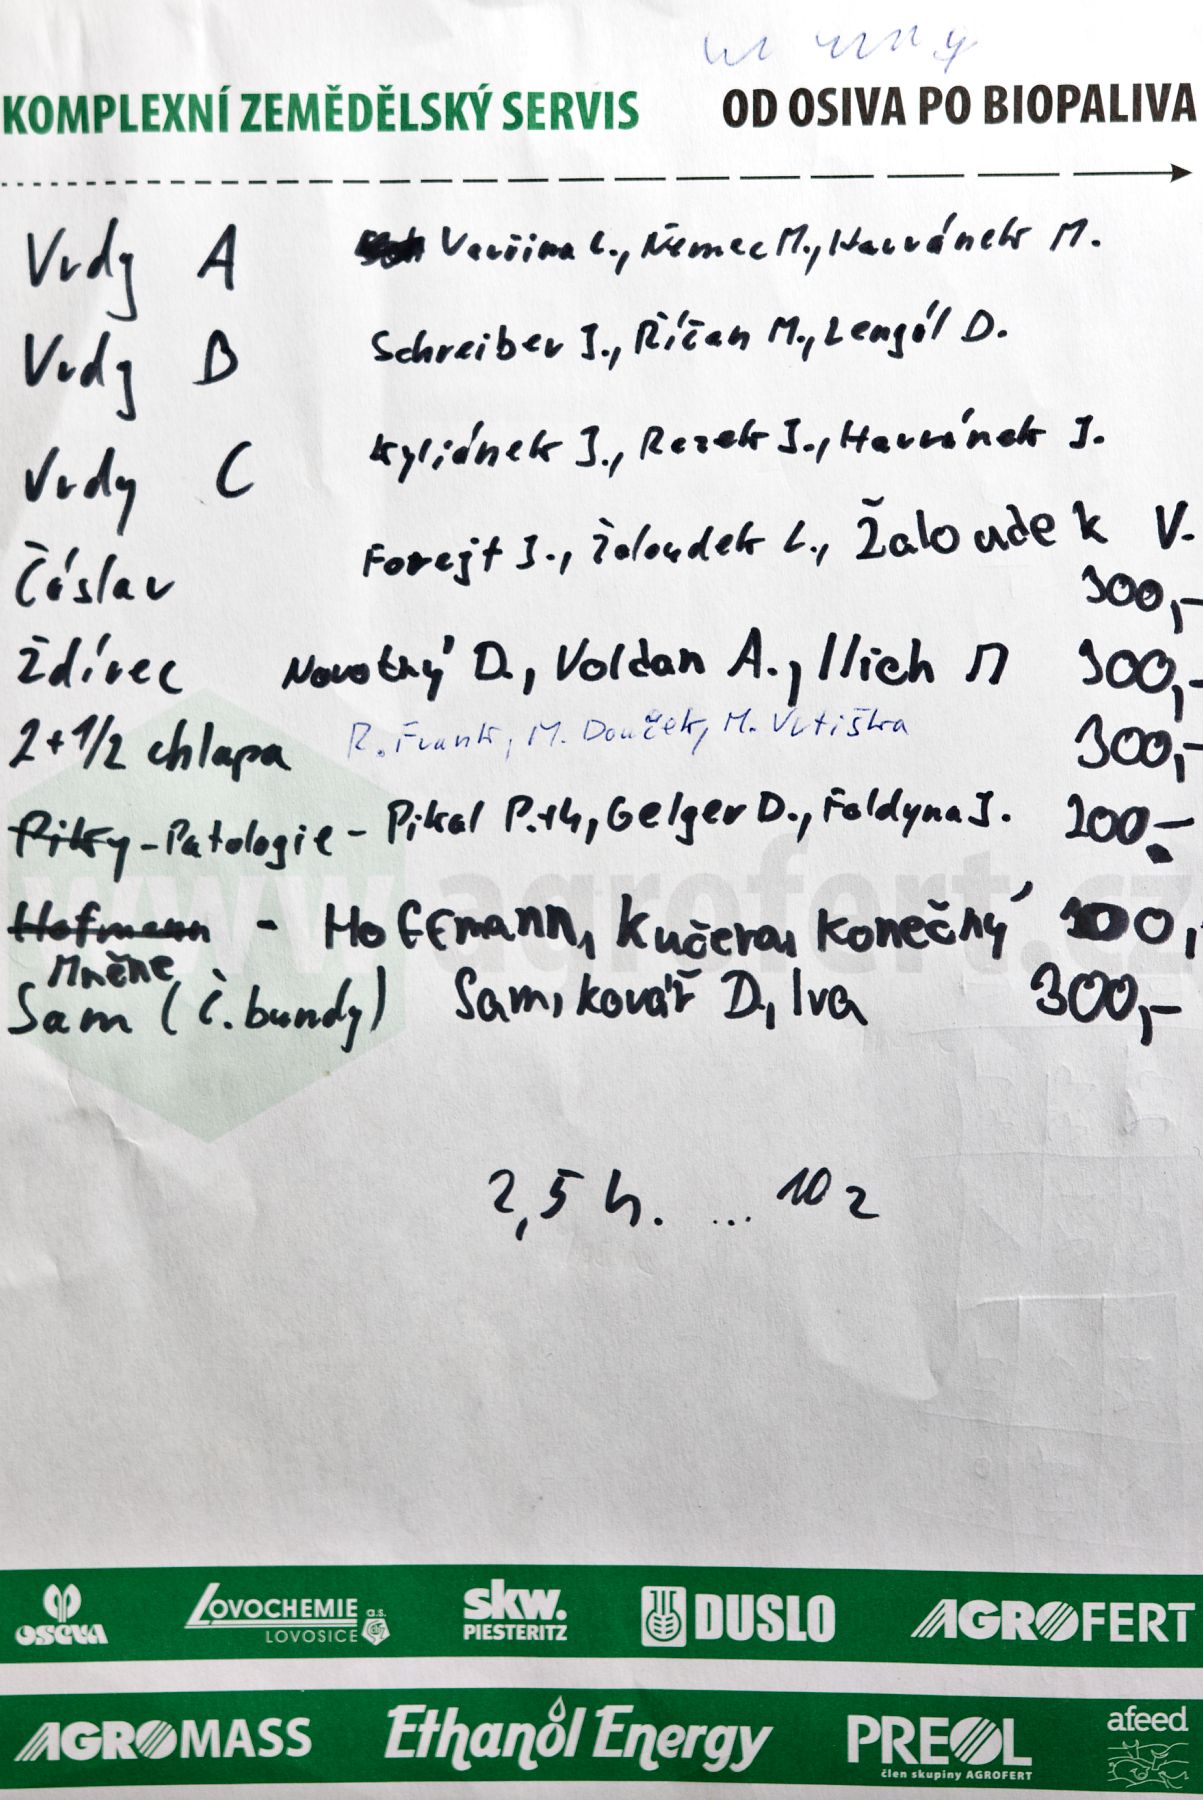 KOMPLEXNÍ ZEMĚDĚLSKÝ SERVIS OD OSIVA PO BIOPALIVA
Vrdy A Vavřina L., Němec M., Havránek M.
Vrdy B Schreiber J., Říčan M., Lengál D.
Vrdy C Kyliánek J., Rezek J., Havránek J.
Čáslav Forejt J., Žaloudek L., Žaloudek V.
300,-
Ždírec Novotný D., Voldan A., Ilich M 300,-
2+1/2 chlapa R. Frank, M. Douček, M. Vrtiška 300,-
Pitky - Patologie - Pikal P.th, Gelger D., Foldyna J. 200,-
www.agrofert.cz
Hofmann - Hoffmann, Kučera, Konečný 300,
Mněne
Sam (č. bundy) Sam, Kovář D., Iva 300,-
2,5 h. ... 10 z
oseva LOVOCHEMIE a.s. LOVOSICE skw. PIESTERITZ DUSLO AGROFERT
AGROMASS Ethanol Energy PREOL člen skupiny AGROFERT afeed